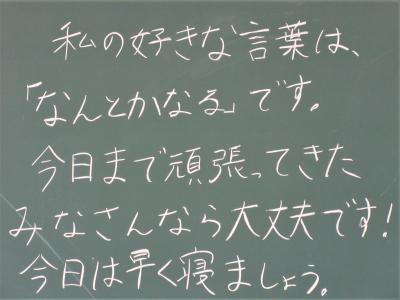 私の好きな言葉は、
「なんとかなる」です。
今日まで頑張ってきた
みなさんなら大丈夫です!
今日は早く寝ましょう。